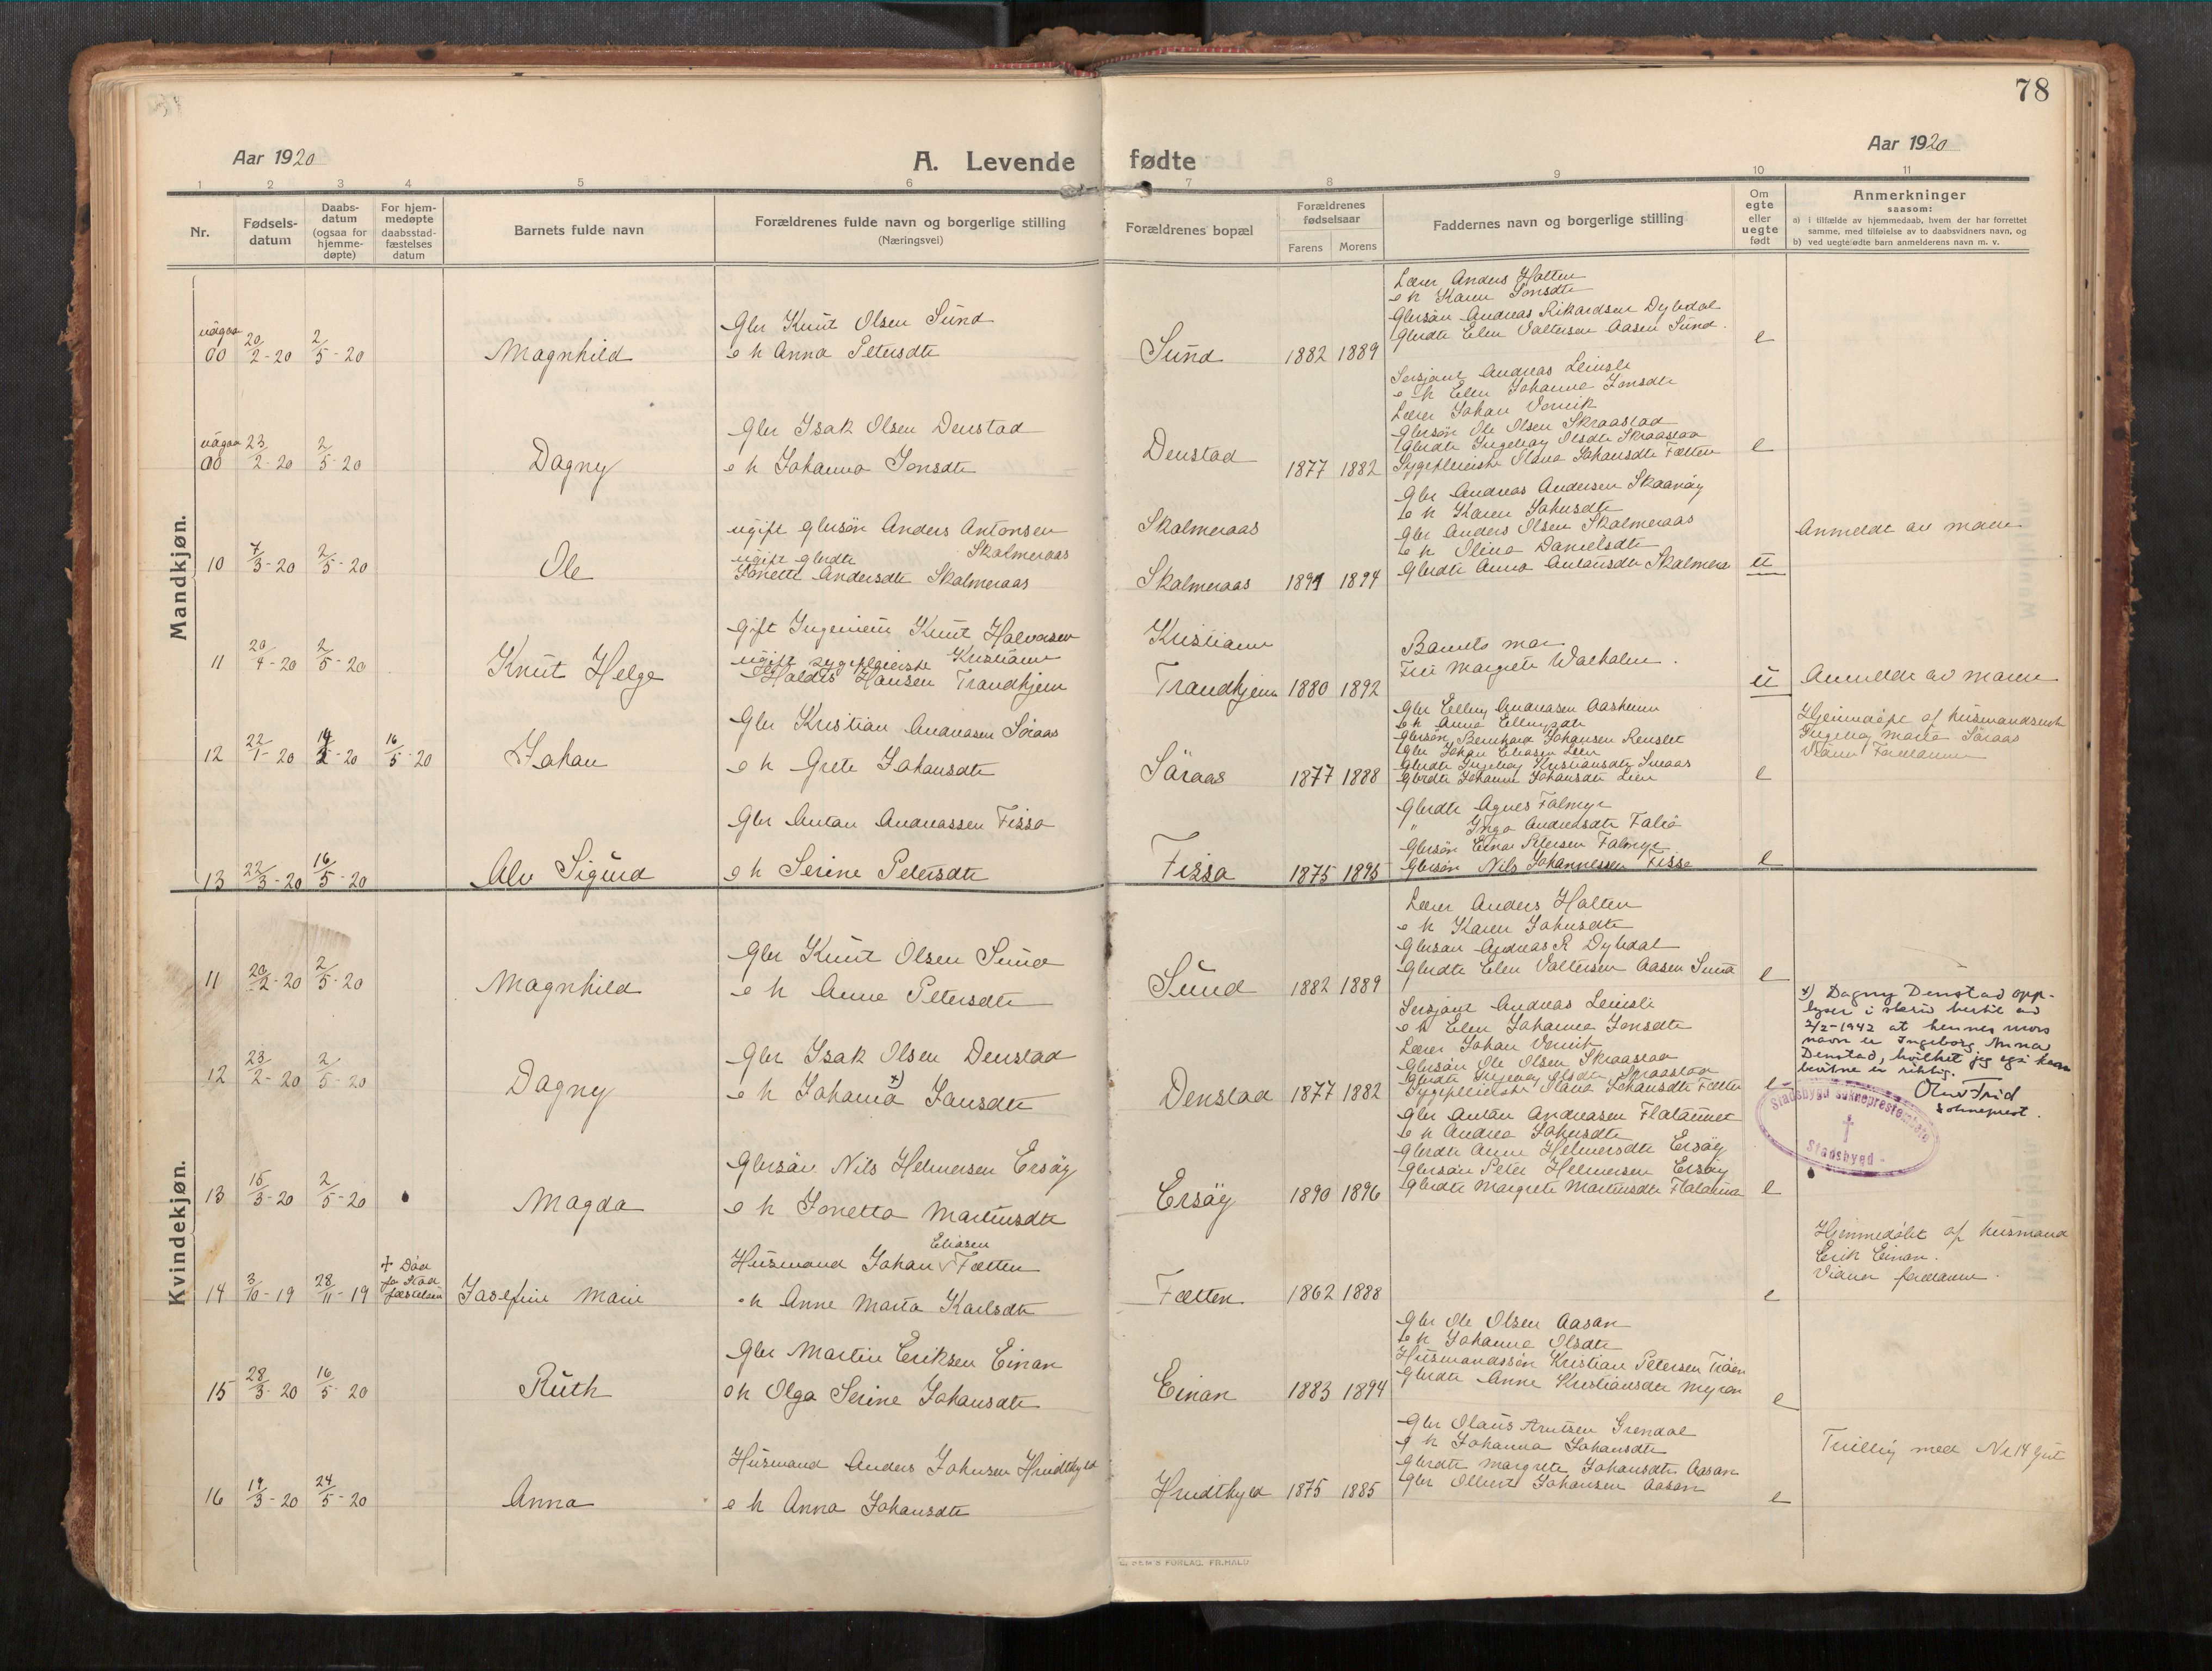 78
Aar 1920
A. Levende fødte
Aar 1920
1 2 3 4 5 6 7 8 9 10 11
Nr.
Fødsels-
datum
Daabs-
datum
(ogsaa for
hjemme-
døpte)
For hjem-
medøpte
daabsstad-
fæstelses
datum
Barnets fulde navn
Forældrenes fulde navn og borgerlige stilling
(Næringsvei)
Forældrenes bopæl
Forældrenes
fødselsaar
Farens Morens
Faddernes navn og borgerlige stilling
Om
egte
eller
uegte
født
Anmerkninger
saasom:
a) i tilfælde av hjemmedaab, hvem der har forrettet
samme, med tilføielse av to daabsvidners navn, og
b) ved uegtefødte barn anmelderens navn m. v.
Mandkjøn.
udgaar
00 20/2-20 2/5-20 Magnhild
Gbr Knut Olsen Sund
e h Anna Petersdtr
Sund 1882 1889
Lærer Anders Holten
e h Karen Jonsdtr
Gbrsøn Andreas Rikardsen Dybdal
Gbrdtr Elen Valtersen Aasen Sund.
e
udgaar
00 23/2-20 2/5-20 Dagny
Gbr Isak Olsen Denstad
e h Johanna Jonsdtr
Denstad 1877 1882
Sersjant Andreas Leinsli
e h Elen Johanna Jonsdtr
Lærer Johan Vernik
Gbrsøn Ole Olsen Skraastad
Gbrdtr Ingeborg Olsdtr Skraastad
Sygepleierske Olava Johansdtr Fætten
e
10 7/3-20 2/5-20 Ole
ugift gbrsøn Anders Antonsen
Skalmeraas
ugift gbrdtr
Jonette Andersdtr Skalmeraas
Skalmeraas
Skalmeraas 1891 1894
Gbr Andreas Andersen Skaanøy
e h Karen Johnsdtr
Gbr Anders Olsen Skalmeraas
e h Olina Danielsdtr
Gbrdtr Anna Antonsdtr Skalmera
u
Anmeldt av moren
11 20/4-20 2/5-20 Knut Helge
Gift Ingeniør Knut Halvorsen
Kristiania
ugift sygepleierske
Haldis Hansen Trondhjem
Kristiania
Trondhjem 1880 1892
Barnets mor
Fru Margrete Walhalm.
u
Anmeldt av moren
12 22/1-20 14/2-20 16/5-20 Johan
Gbr Kristian Andreasen Søraas
e h Grete Johansdtr
Søraas 1877 1888
Gbr Elling Andreasen Aasheim
e h Anna Ellingsdtr
Gbrsøn Bernhard Johansen Renslet
Gbr Johan Eliasen Lien
Gbrdtr Ingeborg Kristiansdtr Søraas
Gbrdtr Johanna Johansdtr Lien
e
Hjemmedøpt af husmandsenk
Ingeborg Marta Søraas
Vidner Forældrene
13 22/3-20 16/5-20 Alv Sigurd
Gbr Anton Andreassen Fissa
e h Serine Petersdtr
Fissa 1875 1895
Gbrdtr Agnes Falmyr
" Inga Andreasdtr Falia
Gbrsøn Einar Petersen Falmyr
Gbrsøn Nils Johannessen Fissa
e
Kvindekjøn.
11 20/2-20 2/5-20 Magnhild
Gbr Knut Olsen Sund
e h Anne Petersdtr
Sund 1882 1889
Lærer Anders Holten
e h Karen Johnsdtr
Gbrsøn Andreas R Dybdal
Gbrdtr Elen Valtersen Aasen Sund
e
12 23/2-20 2/5-20 Dagny
Gbr Isak Olsen Denstad
e h Johanna x) Jonsdtr
Denstad 1877 1882
Sersjant Andreas Leinsli
e h Elen Johanna Jonsdtr
Lærer Johan Vernik
Gbrsøn Ole Olsen Skraastad
Gbrdtr Ingeborg Olsdtr Skraastad
Sygepleierske Olava Johansdtr Fætten
e
x) Dagny Denstad opp-
lyser i skriv hertil av
2/2-1942 at hennes mors
navn er Ingeborg Anna
Denstad, hvilket jeg også kan
bevitne er riktig.
Olav Frid
sokneprest.
Stadsbygd sokneprestembete
Stadsbygd
13 15/3-20 2/5-20 Magda
Gbrsøn Nils Helmersen Ersøy
e h Jonetta Martinsdtr
Ersøy 1890 1896
Gbr Anton Andreasen Flatamet
e h Andrea Johnsdtr
Gbrdtr Anne Helmersdtr Ersøy
Gbrsøn Peter Helmersen Ersøy
Gbrdtr Margrete Martinsdtr Flatamo
e
14 3/10-19 28/11-19 + Død
før Stad
fæstelsen
Josefine Marie
Husmand Johan Eliasen Fætten
e h Anne Marta Karlsdtr
Fætten 1862 1888
e
Hjemmedøbt af husmand
Erik Einan.
Vidner forældrene.
15 28/3-20 16/5-20 Ruth
Gbr Martin Eriksen Einan
e h Olga Serine Johansdtr
Einan 1883 1894
Gbr Ole Olsen Aasan
e h Johanna Olsdtr
Husmandssøn Kristian Petersen Trøen
Gbrdtr Anne Kristiansdtr Myran
e
16 19/3-20 24/5-20 Anna
Husmand Anders Johnsen Hundthyld
e h Anna Johansdtr
Hundthyld 1875 1885
Gbr Olaus Arntsen Grendal
e h Johanna Johansdtr
Gbrdtr Margrete Johansdtr Aasan
Gbr Olbert Johansen Aasan
e
Tvilling med Nr 14 Gut
E. SEM'S FORLAG, FR.HALD